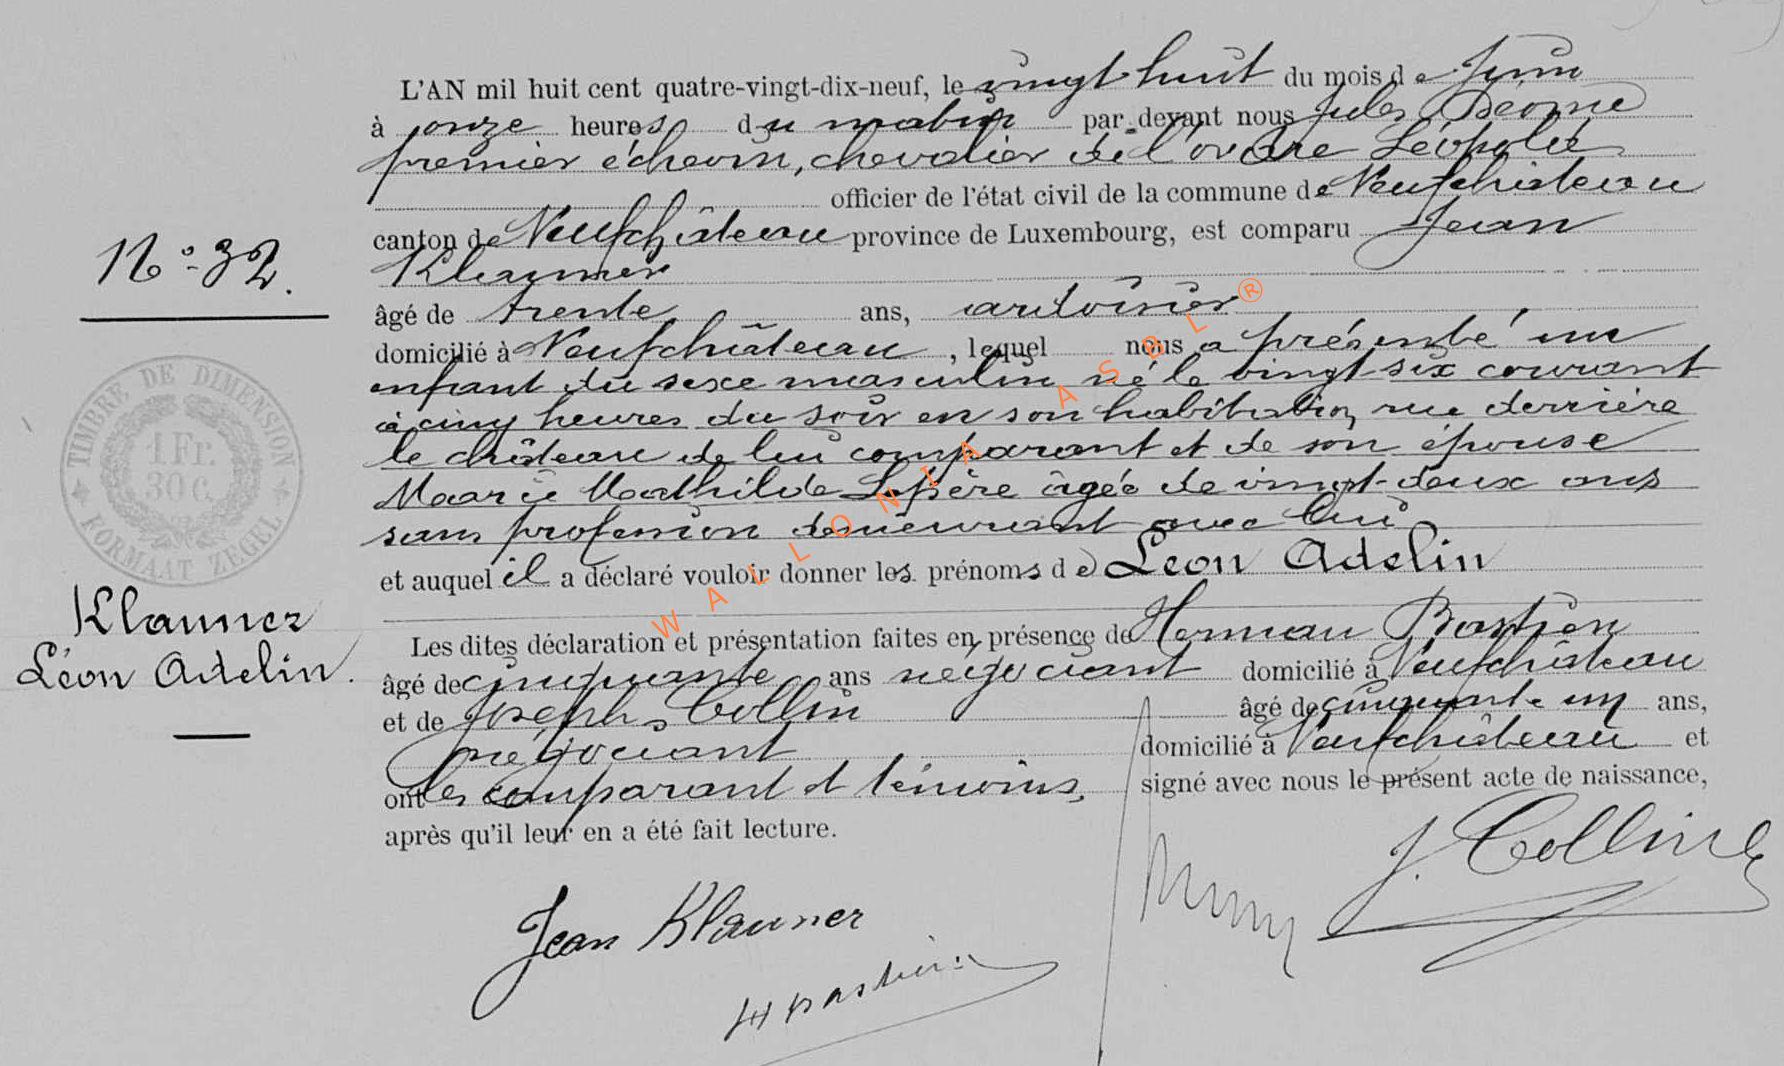 L'AN mil huit cent quatre-vingt-dix-neuf, le vingt huit du mois de Juin
à onze heures du matin par-devant nous Jules
premier échevin, chevalier de l'ordre Léopold
officier de l'état civil de la commune de Neufchâteau
canton de Neufchâteau province de Luxembourg, est comparu Jean
Klauner
âgé de trente ans, ardoisier
domicilié à Neufchâteau, lequel nous a présenté un
enfant du sexe masculin né le vingt six courant
à cinq heures du soir en son habitation rue derrière
le château de lui comparant et de son épouse
Marie Mathilde Lepère âgée de vingt-deux ans
sans profession demeurant avec lui
et auquel il a déclaré vouloir donner les prénoms de Léon Adelin
Les dites déclaration et présentation faites en présence de Herman Bastien
âgé de cinquante ans négociant domicilié à Neufchâteau
et de Joseph Collin âgé de cinquante un ans,
négociant domicilié à Neufchâteau et
ont les comparant et témoins, signé avec nous le présent acte de naissance,
après qu'il leur en a été fait lecture.
No-32.
TIMBRE DE DIMENSION
1 Fr.
30 C.
FORMAAT ZEGEL
Klauner
Léon Adelin.
Jean Klauner
H Bastien
J. Collin
WALLONIA ASBL®